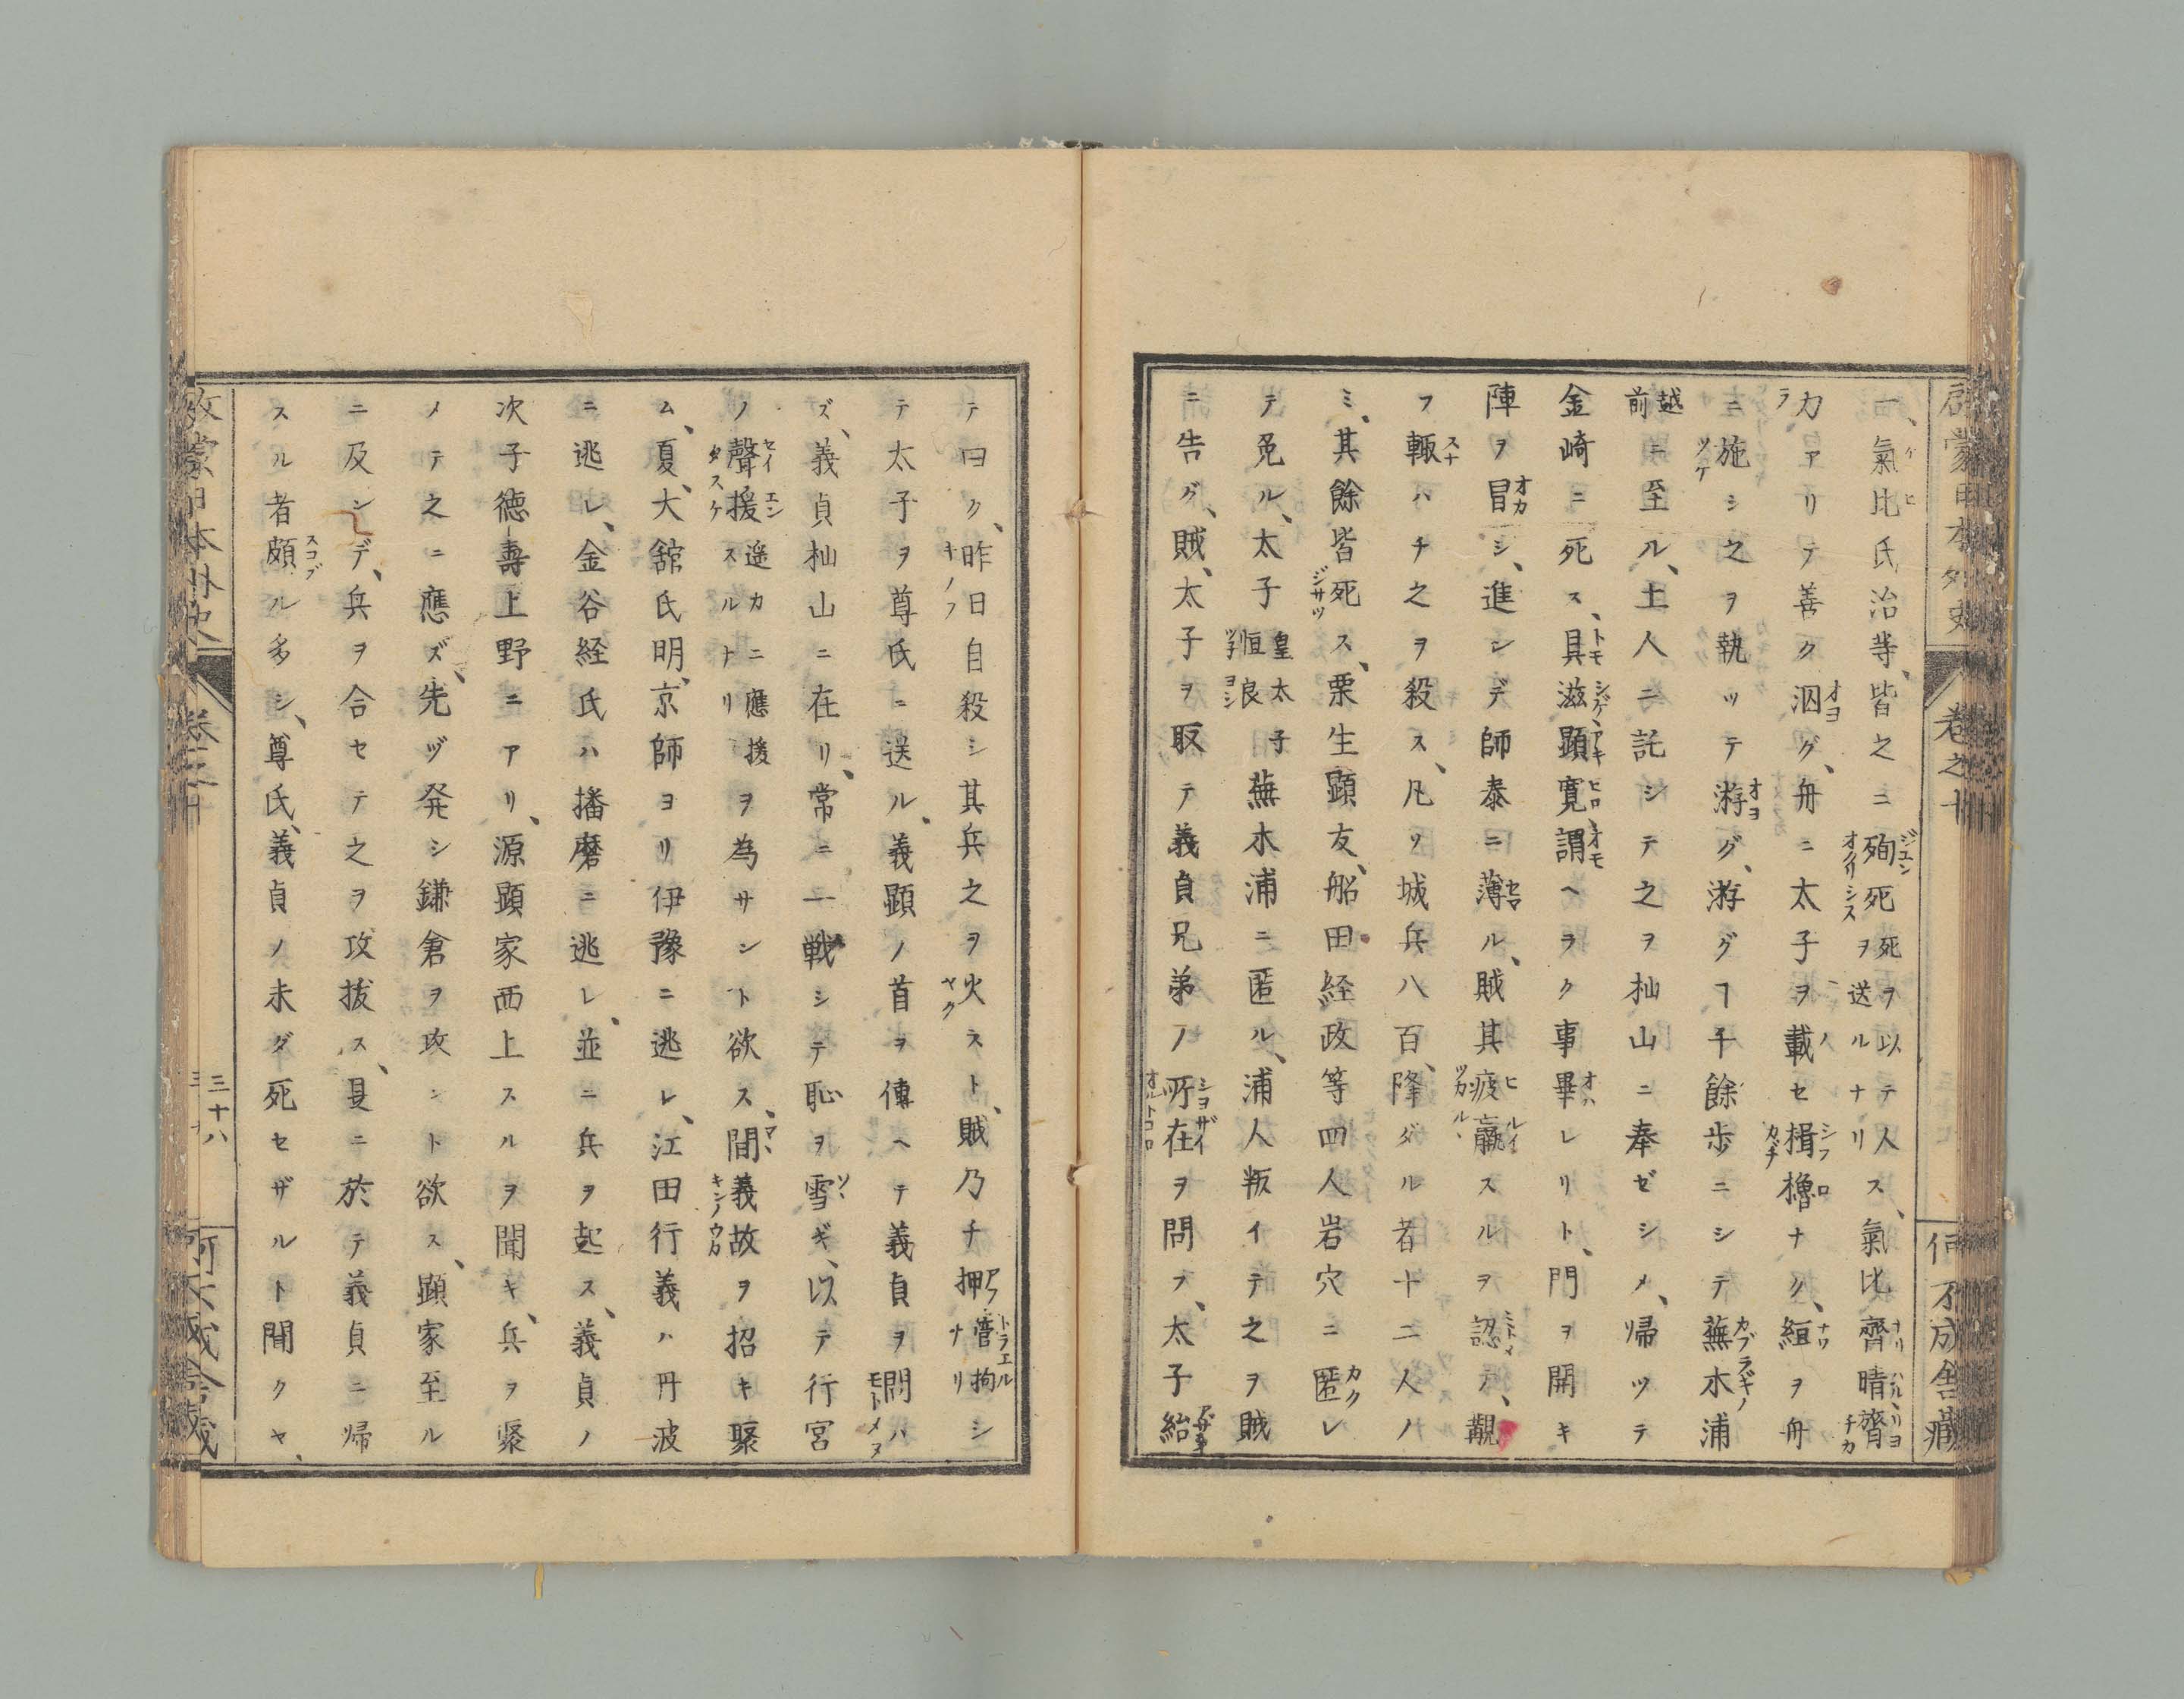 啓蒙日本外史 卷之十 何不成舎藏
一、氣比氏治等、皆之ニ殉死死ヲ以テ人ヲ送ルナリス、氣比齊晴、齊
力アリテ善ク泅グ、舟ニ太子ヲ載セ楫櫓ナク、絙ヲ舟
ニ施シ之ヲ執ツテ游グ、游グヿ千餘歩ニシテ蕪木浦
越前ニ至ル、土人ニ託シテ之ヲ杣山ニ奉ゼシメ、帰ツテ
金崎ニ死ス、具滋顕寛謂ヘラク事畢レリト、門ヲ開キ
陣ヲ冒シ、進ンデ師泰ニ薄ル、賊其疲羸スルヲ認メ、覯
フ輙ハチ之ヲ殺ス、凡ソ城兵八百、降ダル者十二人ノ
ミ、其餘皆死ス、栗生顕友、船田経政等四人岩穴ニ匿レ
テ免ル、太子皇太子恒良蕪木浦ニ匿ル、浦人叛イテ之ヲ賊
ニ告グ、賊、太子ヲ取テ義貞兄弟ノ所在ヲ問フ、太子紿
テ曰ク、昨日自殺シ其兵之ヲ火スト、賊乃チ押管拘ナリシ
テ太子ヲ尊氏ニ送ル、義顕ノ首ヲ傳ヘテ義貞ヲ問ハ
ズ、義貞杣山ニ在リ、常ニ一戦シテ恥ヲ雪ギ、以テ行宮
ノ聲援遥カニ應援スルナリヲ為サント欲ス、間義故ヲ招キ聚
ム、夏、大舘氏明、京師ヨリ伊豫ニ逃レ、江田行義ハ丹波
ニ逃レ、金谷経氏ハ播磨ニ逃レ、並ニ兵ヲ起ス、義貞ノ
次子徳壽上野ニアリ、源顕家西上スルヲ聞キ、兵ヲ聚
メテ之ニ應ズ、先ヅ発シ鎌倉ヲ攻ント欲ス、顕家至ル
ニ及ンデ、兵ヲ合セテ之ヲ攻抜ス、是ニ於テ義貞ニ帰
スル者頗ル多シ、尊氏、義貞ノ未ダ死セザルト聞クヤ、
三十八